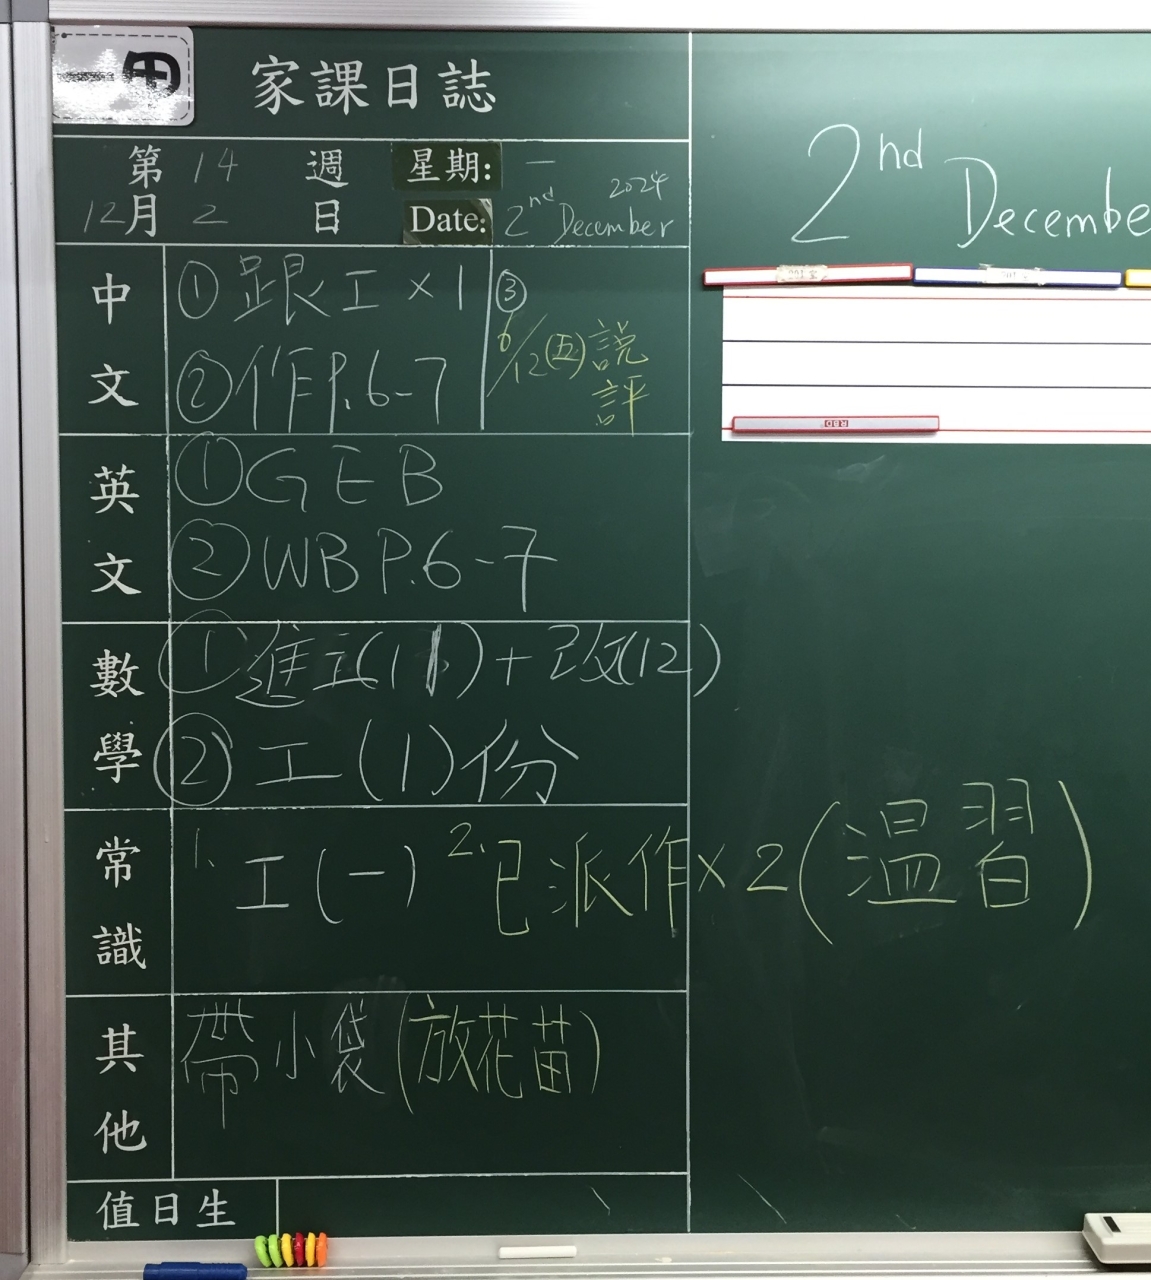 一甲 家課日誌
第 14 週 星期: 一
12月 2 日 Date: 2nd December 2024
中文
① 跟工×1
② 作P.6-7
③ 6/12(五)説評
英文
① GEB
② WBP.6-7
數學
① 進立(11)+已改(12)
② 工(1)份
常識
1. 工(一) 2. 已派作×2(温習)
其他
帶小袋(放花苗)
值日生
2nd Decembe
RBD